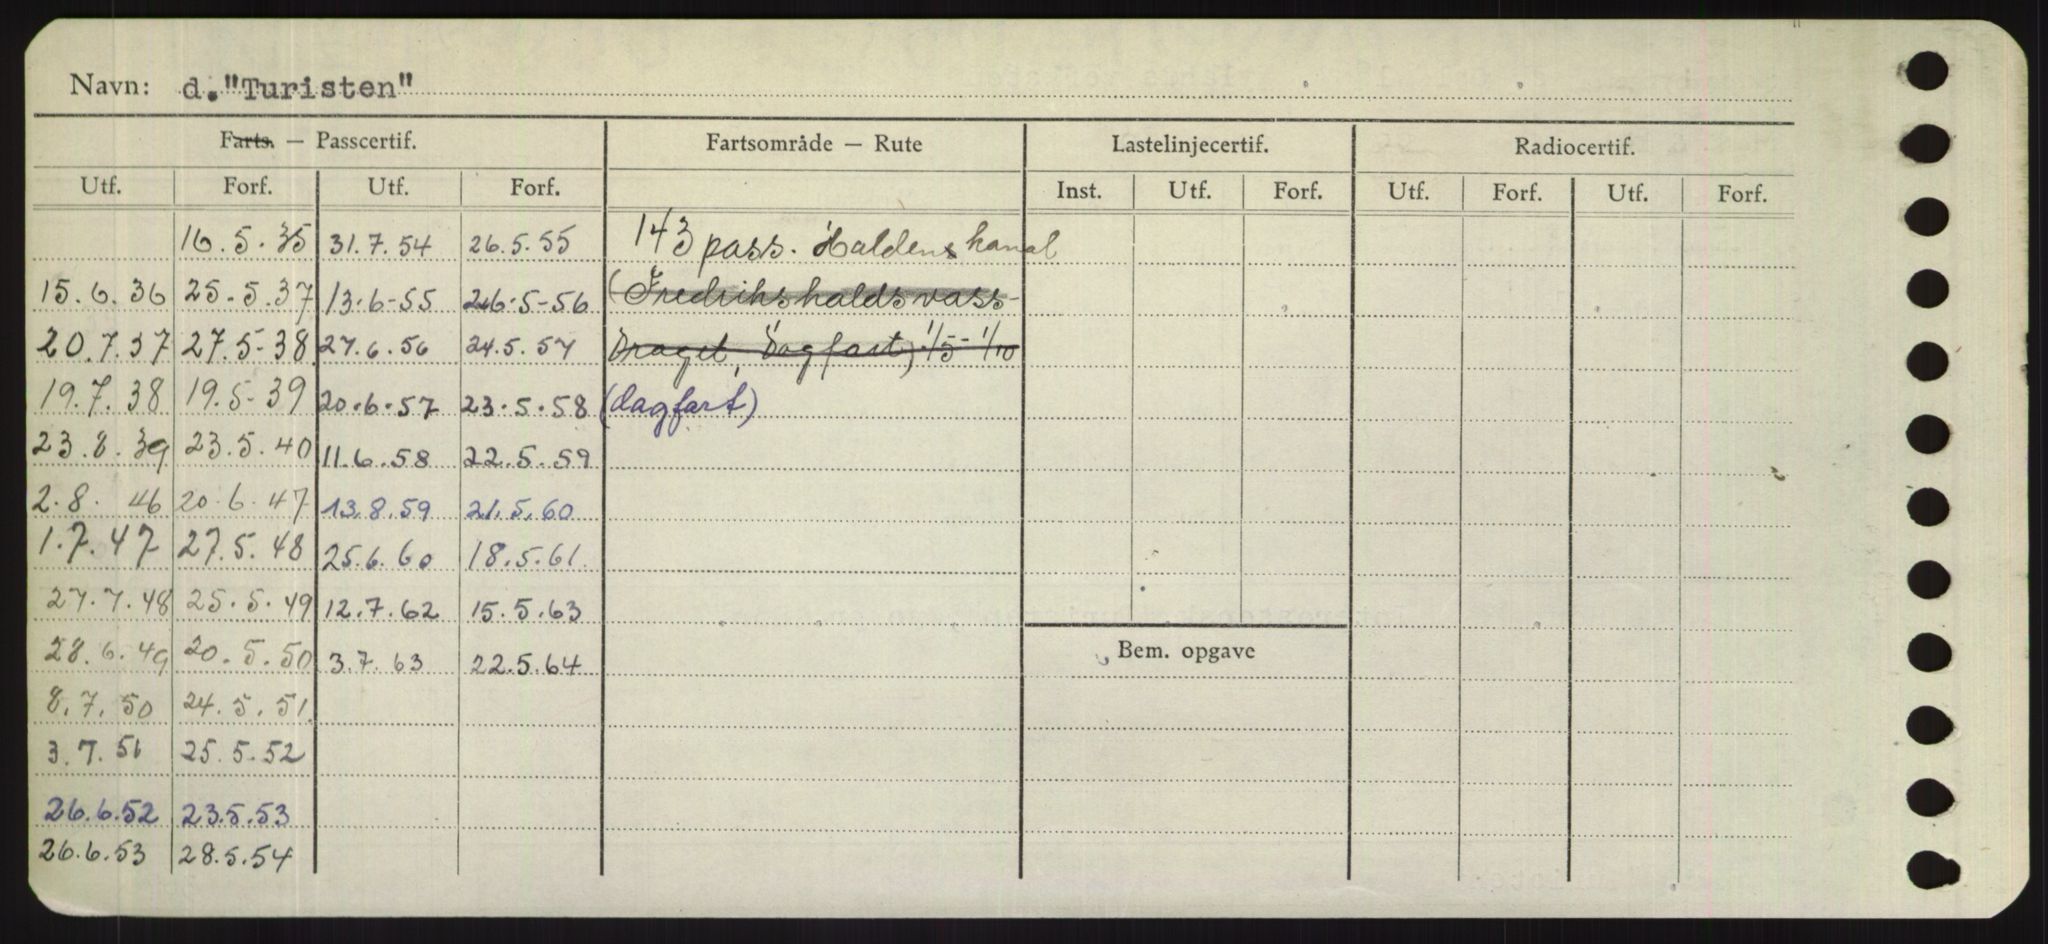 Navn: d. "Turisten"
Farts. — Passcertif. Fartsområde — Rute Lastelinjecertif. Radiocertif.
Utf. Forf. Utf. Forf. Inst. Utf. Forf. Utf. Forf. Utf. Forf.
16.5.35 31.7.54 26.5.55 143 pass. Haldens kanal
15.6.36 25.5.37 13.6-55 26.5-56 (Fredrikshaldsvass-
20.7.37 27.5-38 27.6.56 24.5.57 draget, Dagfart) 1/5-1/10
19.7.38 19.5-39 20.6.57 23.5.58 (dagfart)
23.8.39 23.5.40 11.6.58 22.5.59
2.8. 46 20.6.47 13.8.59 21.5.60
1.7.47 27.5.48 25.6.60 18.5.61.
27.7.48 25.5.49 12.7.62 15.5.63
28.6.49 20.5.50 3.7.63 22.5.64
Bem. opgave
8.7.50 24.5.51
3.7.51 25.5.52
26.6.52 23.5.53
26.6.53 28.5.54